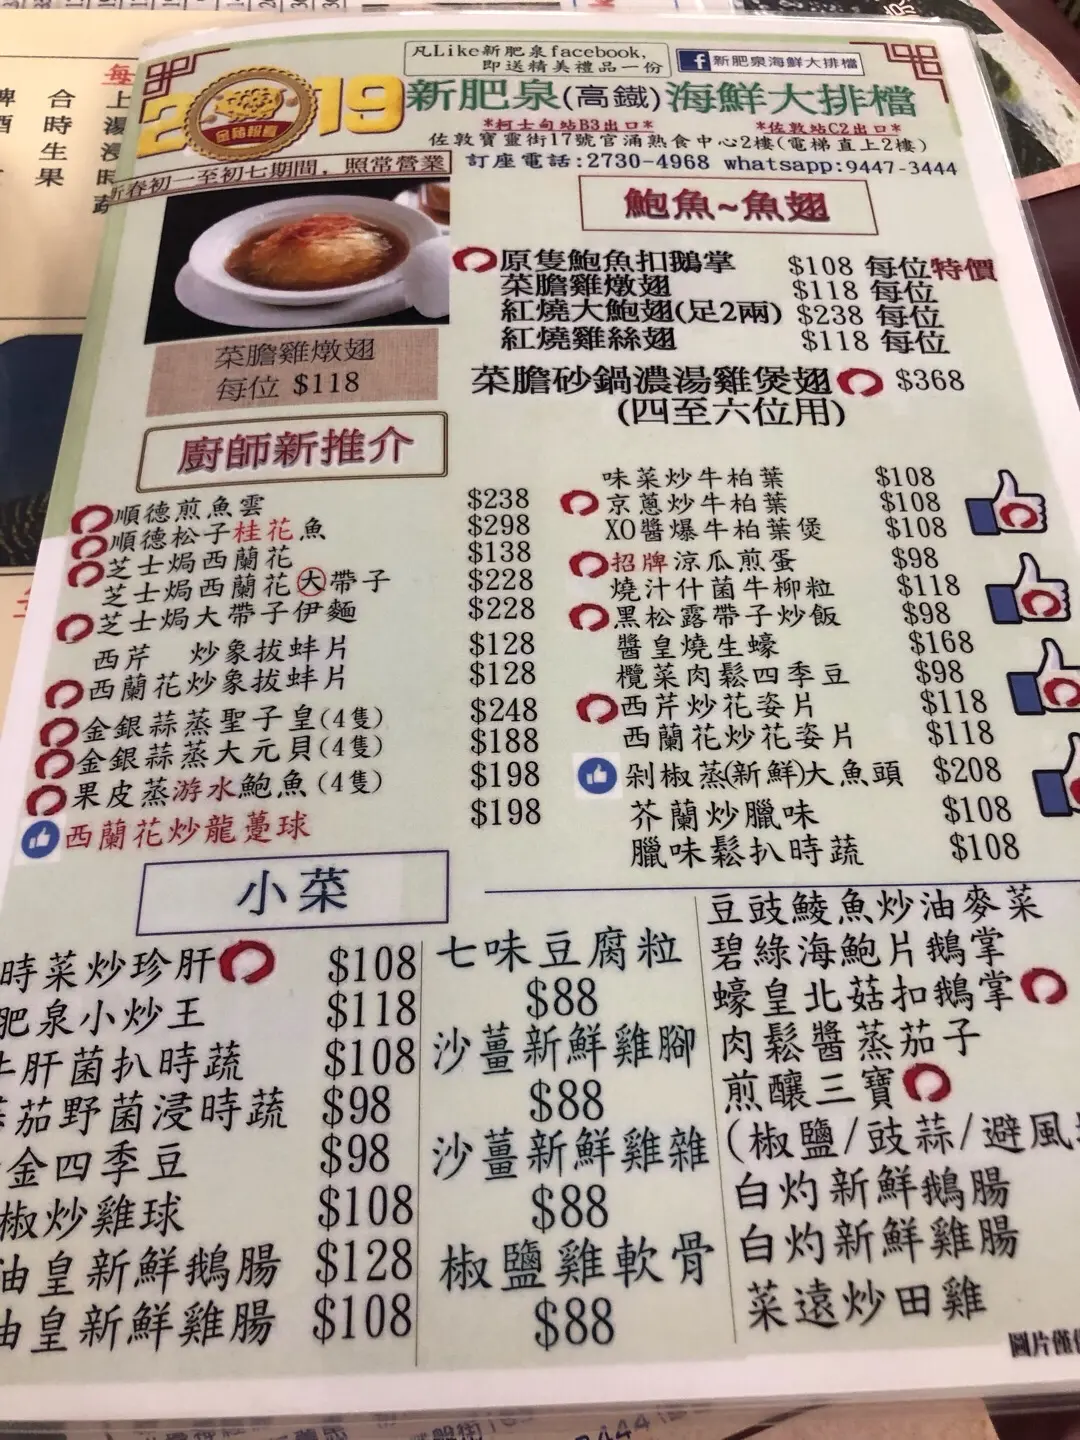 凡Like新肥泉facebook,
即送精美禮品一份
新肥泉海鮮大排檔
2019
新肥泉(高鐵)海鮮大排檔
*柯士甸站B3出口* *佐敦站C2出口*
佐敦寶靈街17號官涌熟食中心2樓(電梯直上2樓)
新春初一至初七期間，照常營業
訂座電話:2730-4968 whatsapp:9447-3444
鮑魚~魚翅
原隻鮑魚扣鵝掌 $108 每位特價
菜膽雞燉翅 $118 每位
紅燒大鮑翅(足2兩) $238 每位
紅燒雞絲翅 $118 每位
菜膽砂鍋濃湯雞煲翅 $368
(四至六位用)
菜膽雞燉翅
每位 $118
廚師新推介
順德煎魚雲 $238
順德松子桂花魚 $298
芝士焗西蘭花 $138
芝士焗西蘭花大帶子 $228
芝士焗大帶子伊麵 $228
西芹 炒象拔蚌片 $128
西蘭花炒象拔蚌片 $128
金銀蒜蒸聖子皇(4隻) $248
金銀蒜蒸大元貝(4隻) $188
果皮蒸游水鮑魚(4隻) $198
西蘭花炒龍躉球 $198
味菜炒牛柏葉 $108
京蔥炒牛柏葉 $108
XO醬爆牛柏葉煲 $108
招牌涼瓜煎蛋 $98
燒汁什菌牛柳粒 $118
黑松露帶子炒飯 $98
醬皇燒生蠔 $168
欖菜肉鬆四季豆 $98
西芹炒花姿片 $118
西蘭花炒花姿片 $118
剁椒蒸(新鮮)大魚頭 $208
芥蘭炒臘味 $108
臘味鬆扒時蔬 $108
小菜
時菜炒珍肝 $108
肥泉小炒王 $118
牛肝菌扒時蔬 $108
茄野菌浸時蔬 $98
金四季豆 $98
椒炒雞球 $108
油皇新鮮鵝腸 $128
油皇新鮮雞腸 $108
七味豆腐粒
$88
沙薑新鮮雞腳
$88
沙薑新鮮雞雜
$88
椒鹽雞軟骨
$88
豆豉鯪魚炒油麥菜
碧綠海鮑片鵝掌
蠔皇北菇扣鵝掌
肉鬆醬蒸茄子
煎釀三寶
(椒鹽/豉蒜/避風
白灼新鮮鵝腸
白灼新鮮雞腸
菜遠炒田雞
圖片僅